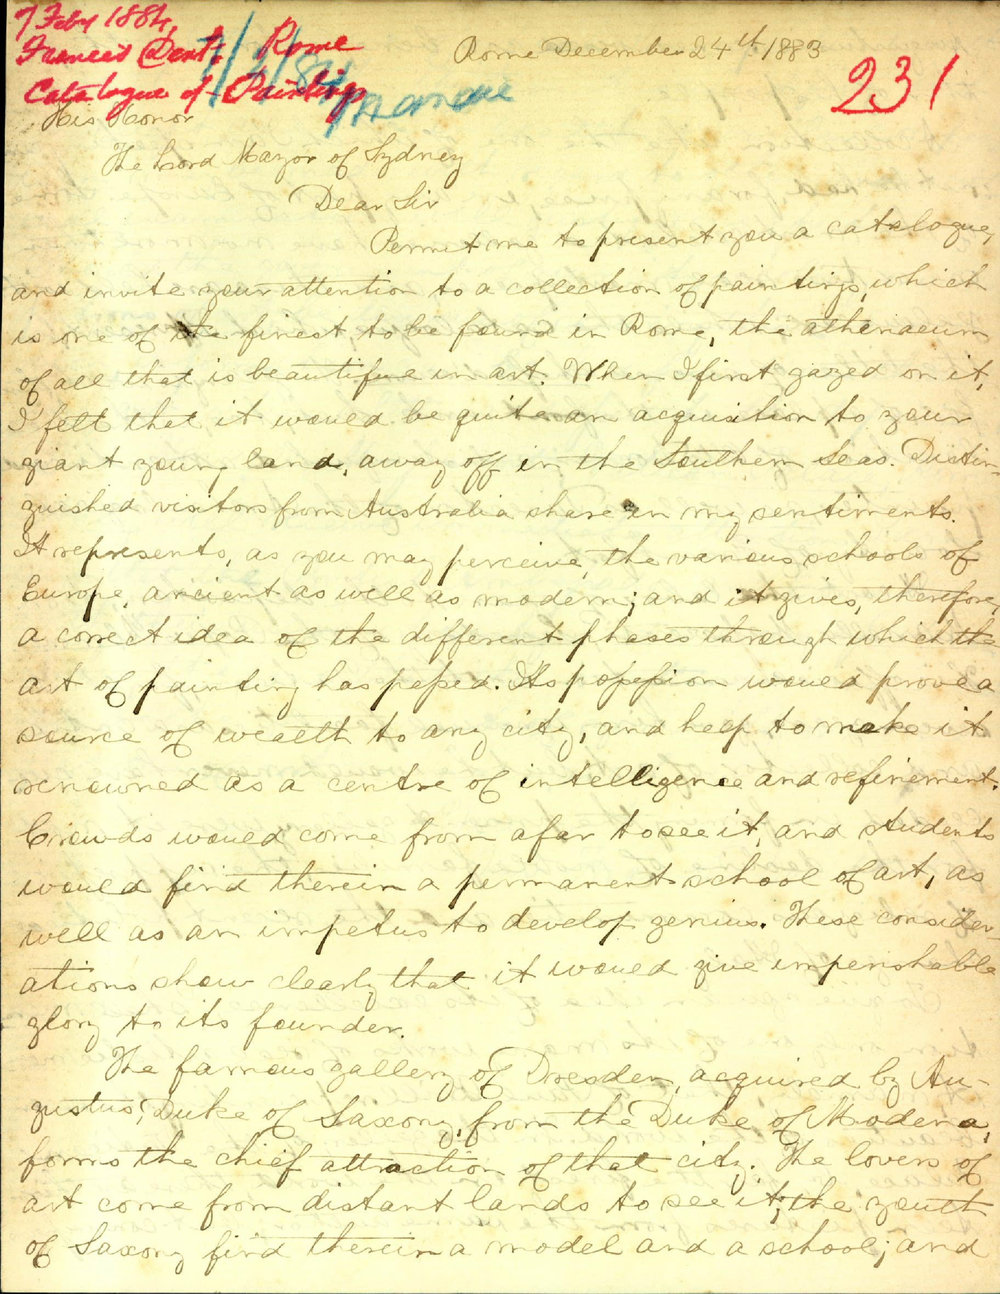 7 Feby 1884,
Rome
Catalogue of Paintings
231
Rome December 24th 1883
His Honor
The Lord Mayor of Sydney
Dear Sir
Permit me to present you a catalogue,
and invite your attention to a collection of paintings, which
is one of the finest, to be found in Rome, the athenaeum
of all that is beautiful in art. When I first gazed on it,
I felt that it would be quite an acquisition to your
giant young land, away off in the Southern Seas. Distin-
guished visitors from Australia share in my sentiments.
It represents, as you may perceive, the various schools of
Europe, ancient as well as modern; and it gives, therefore,
a correct idea of the different phases through which the
art of painting has passed. Its possession would prove a
source of wealth to any city, and help to make it
renowned as a centre of intelligence and refinement.
Crowds would come from afar to see it, and students
would find therein a permanent school of art, as
well as an impetus to develop genius. These consider-
ations show clearly that it would give imperishable
glory to its founder.
The famous gallery of Dresden, acquired by Au-
gustus, Duke of Saxony, from the Duke of Modena,
forms the chief attraction of that city. The lovers of
art come from distant lands to see it; the youth
of Saxony find therein a model and a school; and